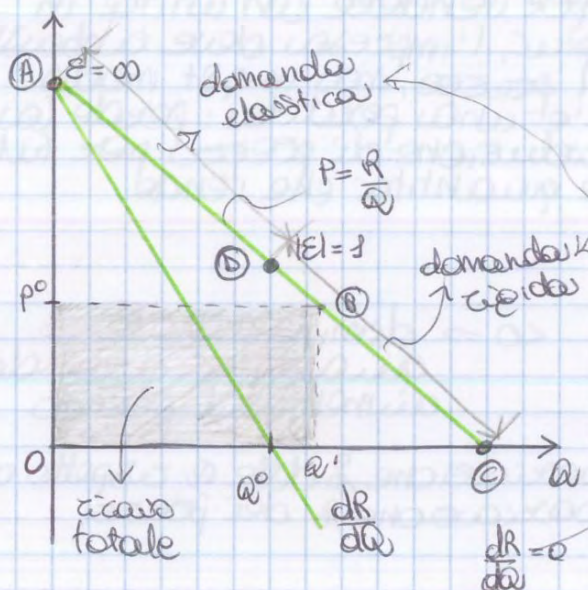 A
ε = ∞
domanda elastica
P = R/Q
D
|ε| = 1
P°
B
domanda rigida
O
Q°
Q'
C
Q
ricavo totale
dR/dQ
dR/dQ = 0